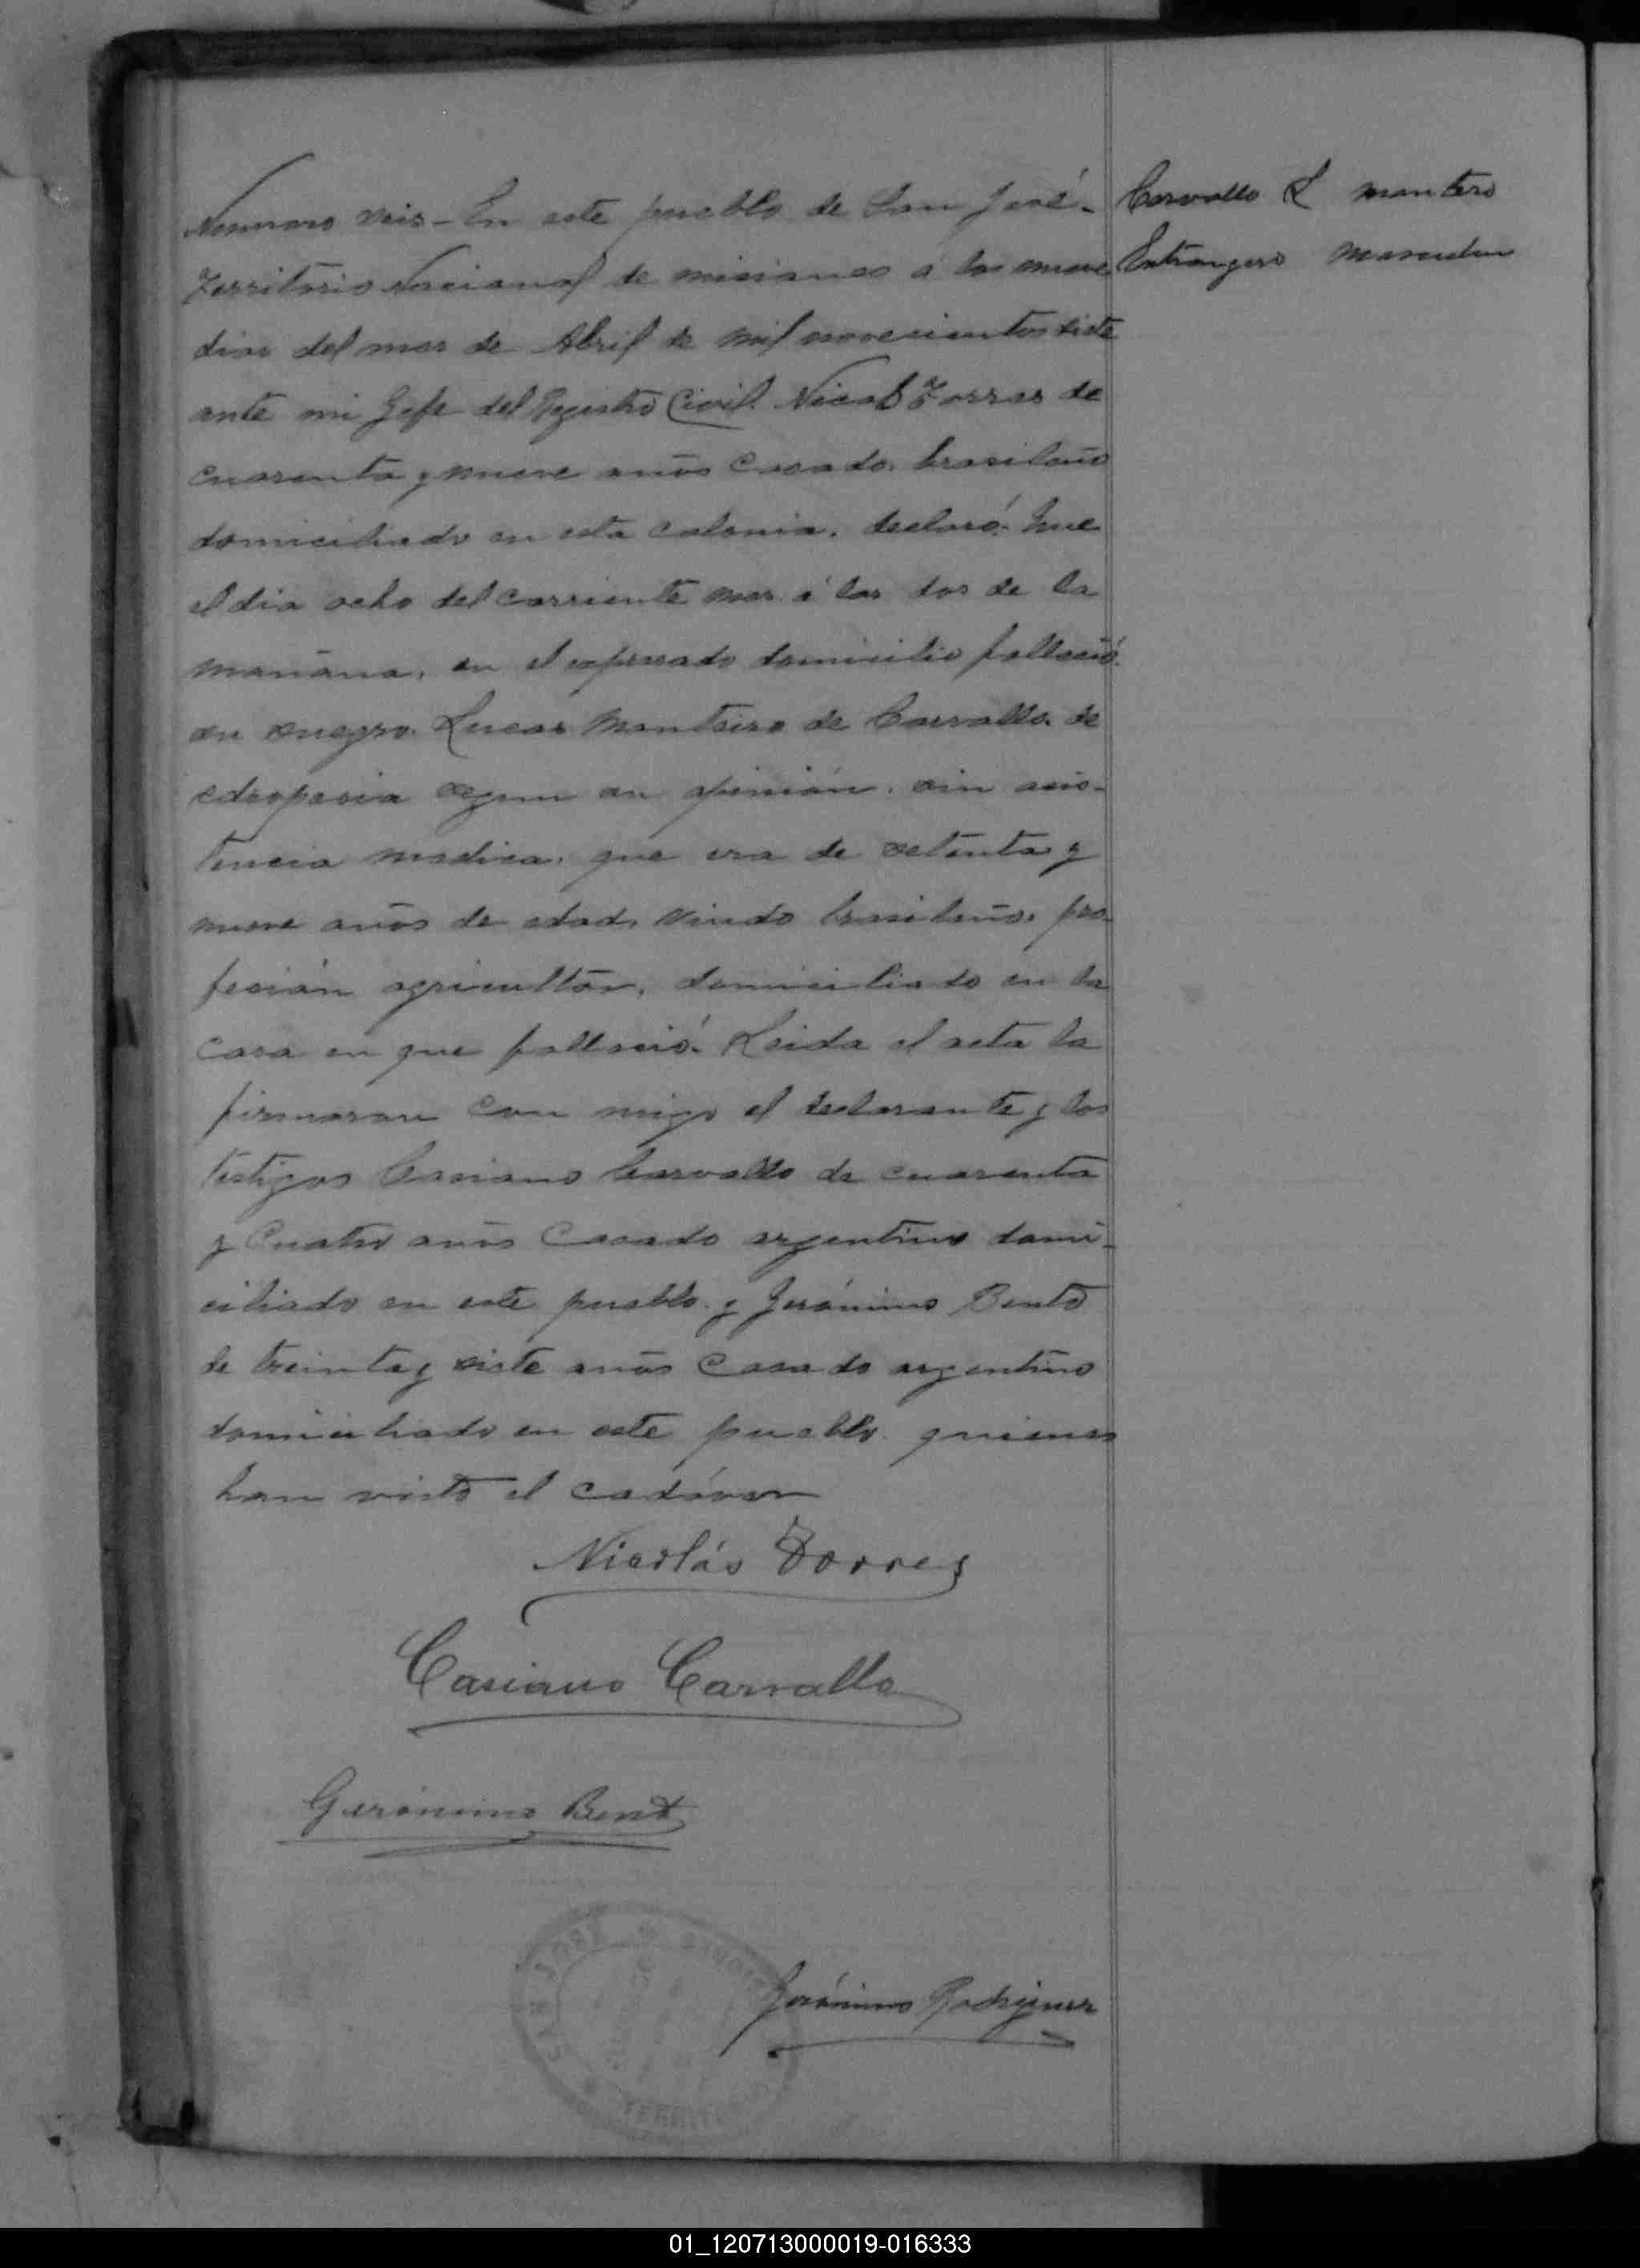 Numero seis - En este pueblo de San José -
Territorio Nacional de misiones a los nueve
dias del mes de Abril de mil novecientos siete
ante mi Jefe del Registro Civil. Nicolˢ Torres de
cuarenta y nueve años Casado, brasileño
domiciliado en esta colonia, declaró: Que
el dia ocho del corriente mes á las dos de la
mañana, en el expresado domicilio falleció
su suegro. Lucas Monteiro de Carvallo. de
edropecia segun su opinión, sin asis-
tencia medica, que era de setenta y
nueve años de edad, viudo brasileño, pro
fesión agricultor, domiciliado en la
casa en que falleció. Leida el acta la
firmaron con migo el declarante y los
testigos Casiano Carvallo de cuarenta
y Cuatro años Casado argentino domi-
ciliado en este pueblo. y Jerónimo Bento
de treinta y siete años Casado argentino
domiciliado en este pueblo quienes
han visto el cadáver
Nicolás Torres
Casiano Carvallo
Gerónimo Bento
Jerónimo Rodriguez
SAN JOSE
TERRITORIO
Carvallo L montero
Extrangero Masculin
01_120713000019-016333